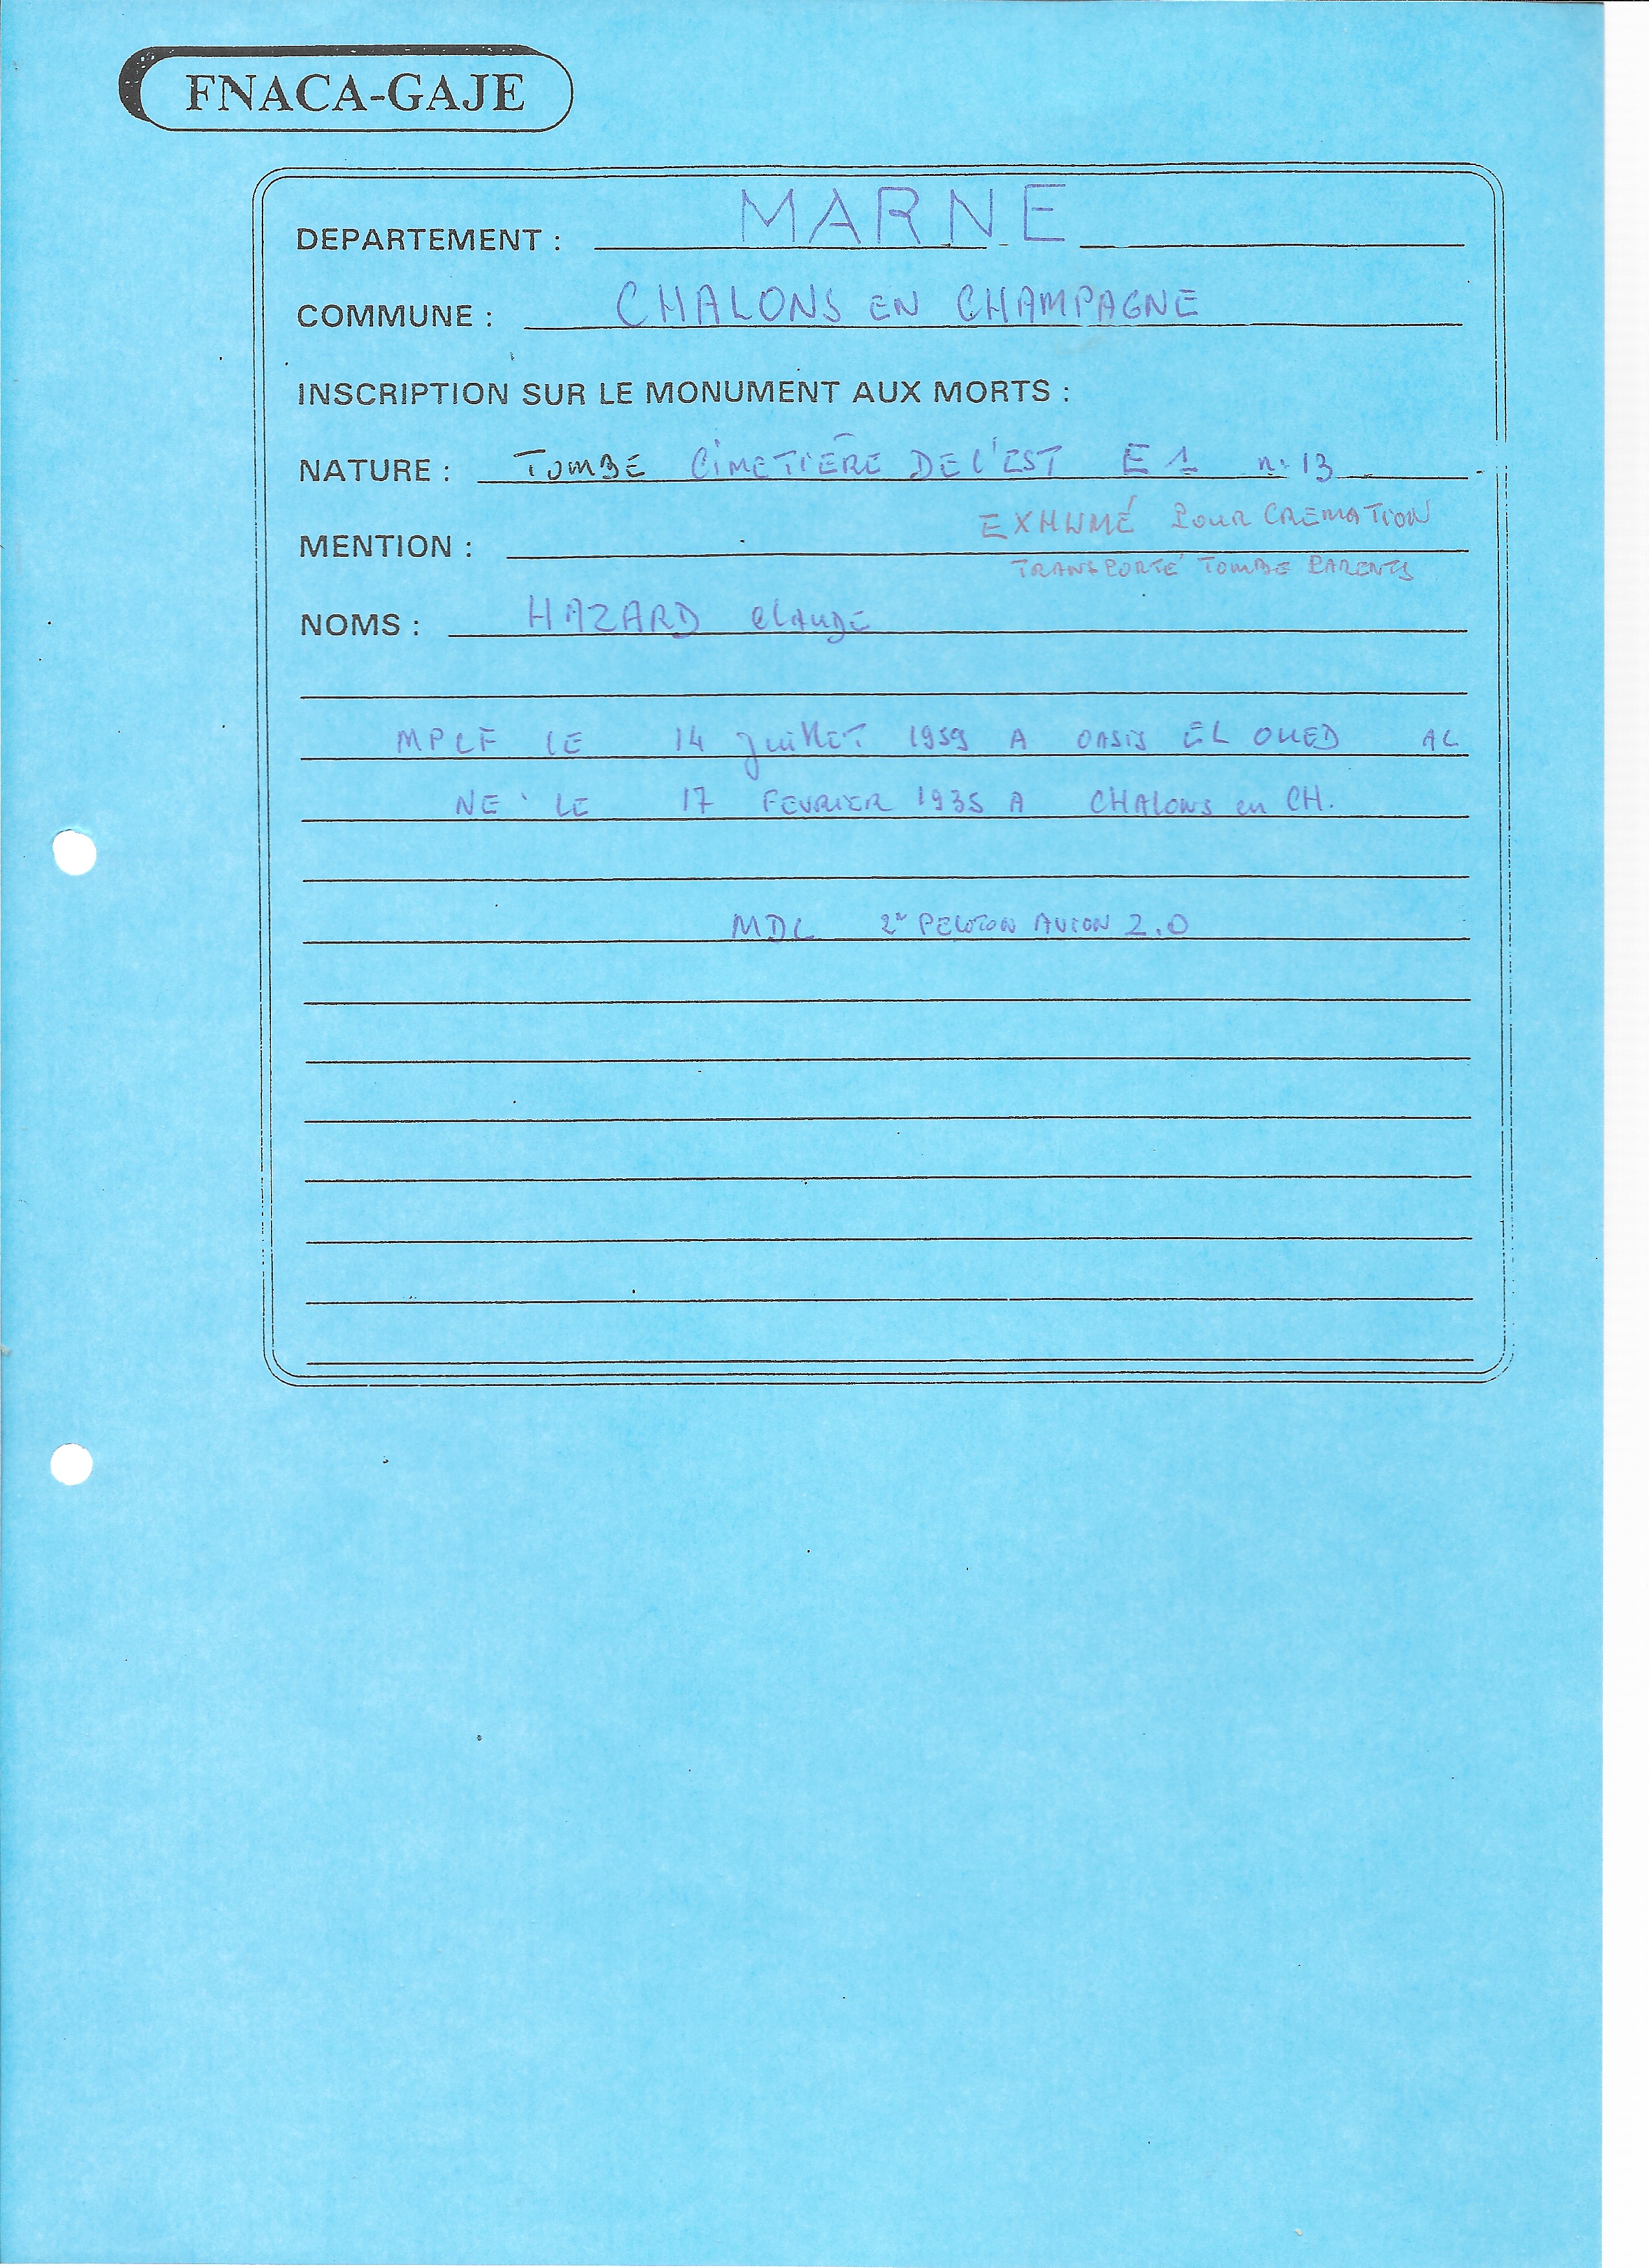 FNACA-GAJE
DEPARTEMENT : MARNE
COMMUNE : CHALONS EN CHAMPAGNE
INSCRIPTION SUR LE MONUMENT AUX MORTS :
NATURE : TOMBE CIMETIERE DE L'EST E 1 n° 13
EXHUMÉ POUR CREMATION
MENTION :
TRANSPORTÉ TOMBE PARENTS
NOMS : HAZARD CLAUDE
MPLF LE 14 juillET 1959 A OASIS EL OUED AL
NE LE 17 FEVRIER 1935 A CHALONS en CH.
MDL 2e PELOTON AVION 2.0